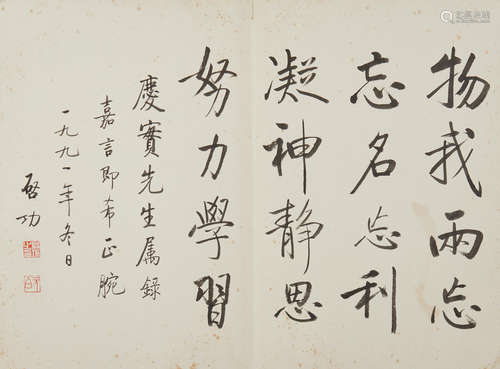 物我兩忘
忘名忘利
凝神静思
努力學習
慶寶先生属録
嘉言即希正腕
一九九一年冬日
啓功